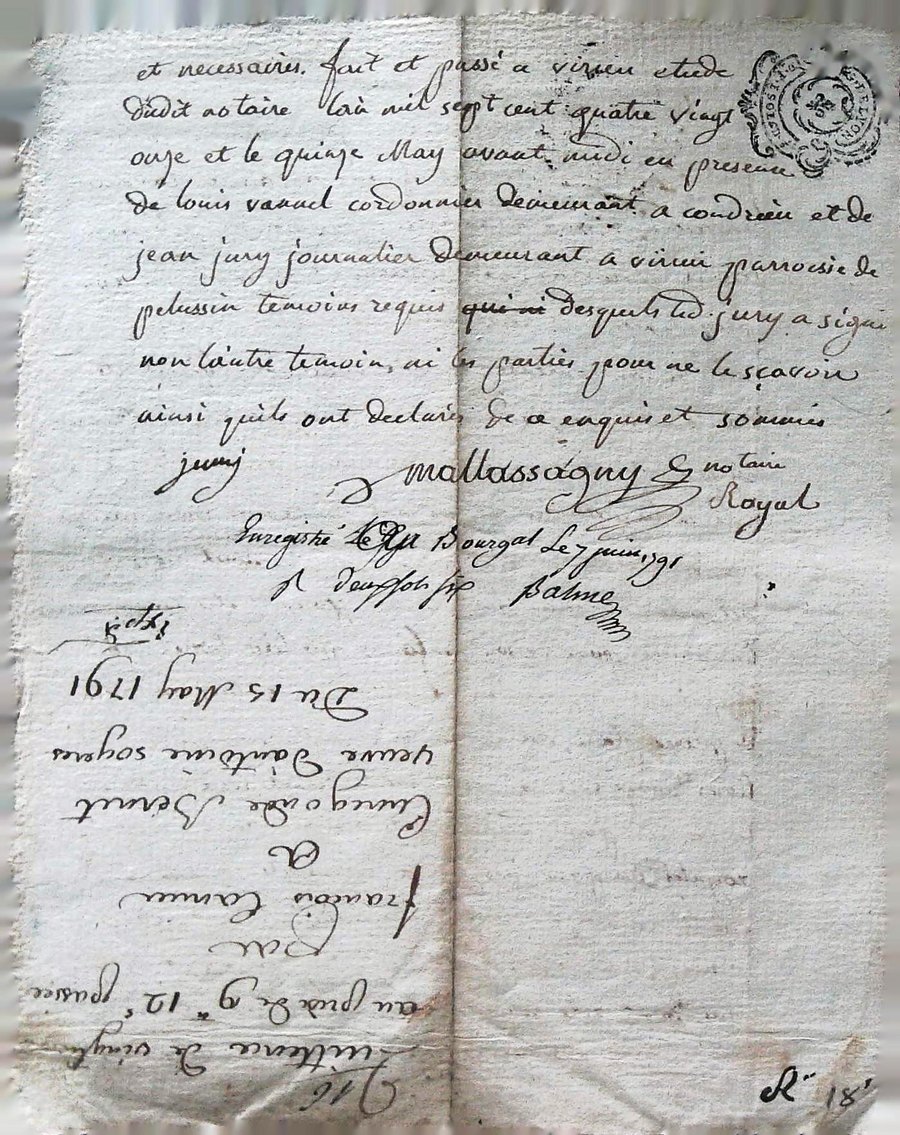 et necessaires. fait et passé a virieu etude
dudit notaire lan mil sept cent quatre vingt
onze et le quinze May avant midi en presence
de louis vanel cordonnier demeurant a condrieu et de
jean jury journalier demeurant a virieu parroisse de
pelussin temoins requis qui ni desquels led. jury a signé
non lautre temoin, ni les parties pour ne le sçavoir
ainsi quils ont declarés de ce enquis et sommés
jury
Mallassagny notaire
Royal
Enregistré Bourgal Le 7 juin 1791
R deux sols six Balme
R 18
216
Quittance de vingt
au prix de 9tt 12s passée
par
francois
a
Cunegonde Bernet
veuve dantoine sogeres
Du 15 May 1791